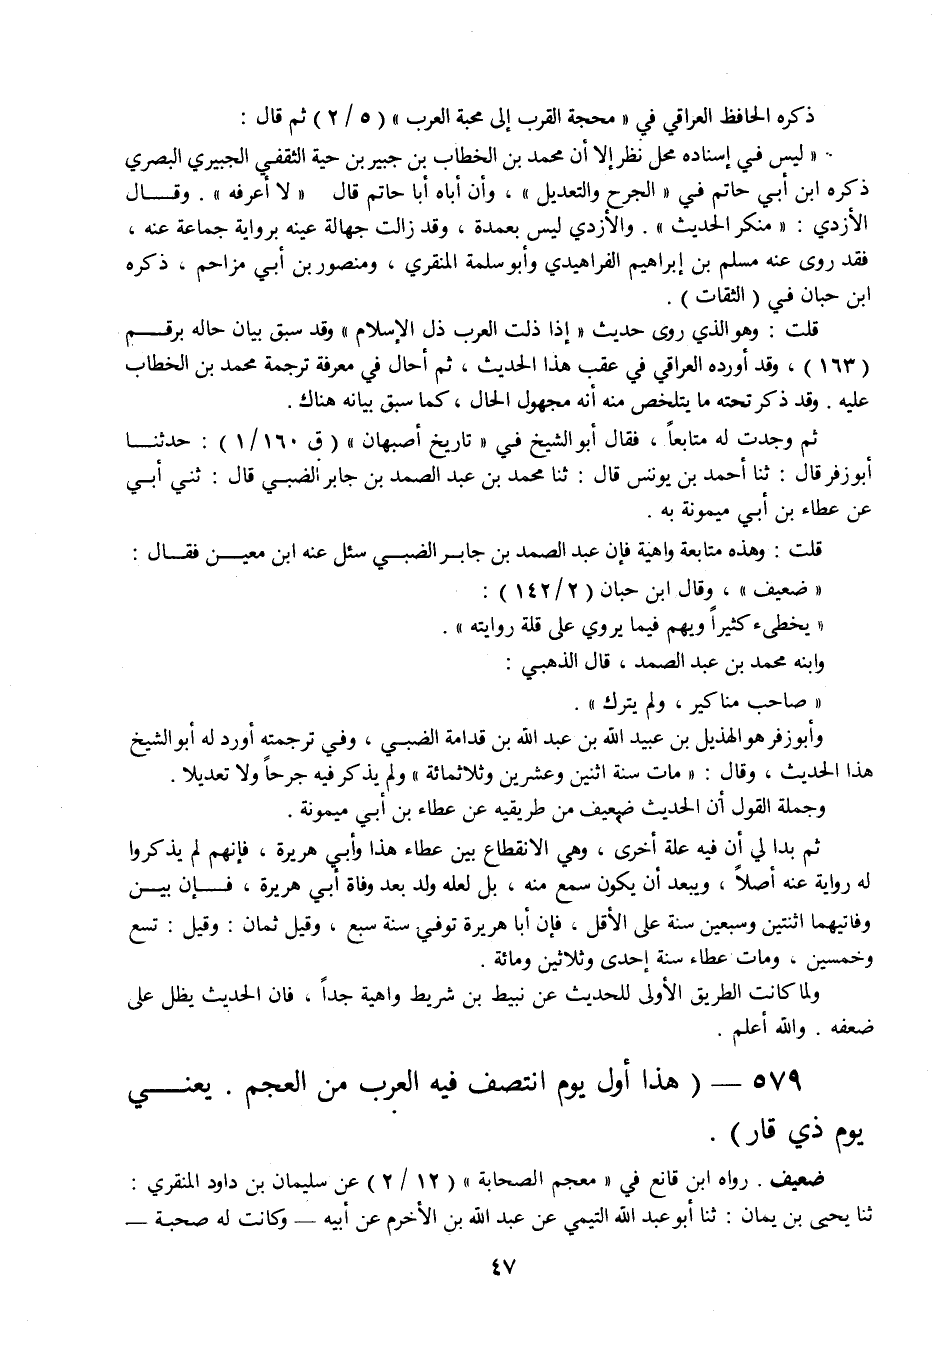 ذكره الحافظ العراقي في « محجة القرب إلى محبة العرب » ( ٥ / ٢ ) ثم قال :
« ليس في إسناده محل نظر إلا أن محمد بن الخطاب بن جبير بن حية الثقفي الجبيري البصري
ذكره ابن أبي حاتم في « الجرح والتعديل » ، وأن أباه أبا حاتم قال « لا أعرفه » . وقـــال
الأزدي : « منكر الحديث » . والأزدي ليس بعمدة ، وقد زالت جهالة عينه برواية جماعة عنه ،
فقد روى عنه مسلم بن إبراهيم الفراهيدي وأبو سلمة المنقري ، ومنصور بن أبي مزاحم ، ذكره
ابن حبان في ( الثقات ) .
قلت : وهو الذي روى حديث « إذا ذلت العرب ذل الإسلام » وقد سبق بيان حاله برقــم
( ١٦٣ ) ، وقد أورده العراقي في عقب هذا الحديث ، ثم أحال في معرفة ترجمة محمد بن الخطاب
عليه . وقد ذكر تحته ما يتلخص منه أنه مجهول الحال ، كما سبق بيانه هناك .
ثم وجدت له متابعاً ، فقال أبو الشيخ في « تاريخ أصبهان » ( ق ١٦٠/ ١ ) : حدثنـــا
أبو زفر قال : ثنا أحمد بن يونس قال : ثنا محمد بن عبد الصمد بن جابر الضبـي قال : ثني أبـي
عن عطاء بن أبـي ميمونة به .
قلت : وهذه متابعة واهية فإن عبد الصمد بن جابـر الضبـي سئل عنه ابن معيــن فقــال :
« ضعيف » ، وقال ابن حبان ( ١٤٢/٢ ) :
« يخطىء كثيراً ويهم فيما يروي على قلة روايته » .
وابنه محمد بن عبد الصمد ، قال الذهبـي :
« صاحب مناكير ، ولم يترك » .
وأبو زفر هو الهذيل بن عبيد الله بن عبد الله بن قدامة الضبـي ، وفي ترجمته أورد له أبو الشيخ
هذا الحديث ، وقال : « مات سنة اثنين وعشرين وثلاثمائة » ولم يذكر فيه جرحاً ولا تعديلا .
وجملة القول أن الحديث ضعيف من طريقيه عن عطاء بن أبـي ميمونة .
ثم بدا لي أن فيه علة أخرى ، وهي الانقطاع بين عطاء هذا وأبـي هريرة ، فإنهم لم يذكروا
له رواية عنه أصلاً ، ويبعد أن يكون سمع منه ، بل لعله ولد بعد وفاة أبـي هريرة ، فـــإن بيـــن
وفاتيهما اثنتين وسبعين سنة على الأقل ، فإن أبا هريرة توفي سنة سبع ، وقيل ثمان : وقيل : تسع
وخمسين ، ومات عطاء سنة إحدى وثلاثين ومائة .
ولما كانت الطريق الأولى للحديث عن نبيط بن شريط واهية جداً ، فان الحديث يظل على
ضعفه . والله أعلم .
٥٧٩ — ( هذا أول يوم انتصف فيه العرب من العجم . يعنـــي
يوم ذي قار ) .
ضعيف . رواه ابن قانع في « معجم الصحابة » ( ١٢ / ٢ ) عن سليمان بن داود المنقري :
ثنا يحيى بن يمان : ثنا أبو عبد الله التيمي عن عبد الله بن الأخرم عن أبيه — وكانت له صحبة —
٤٧